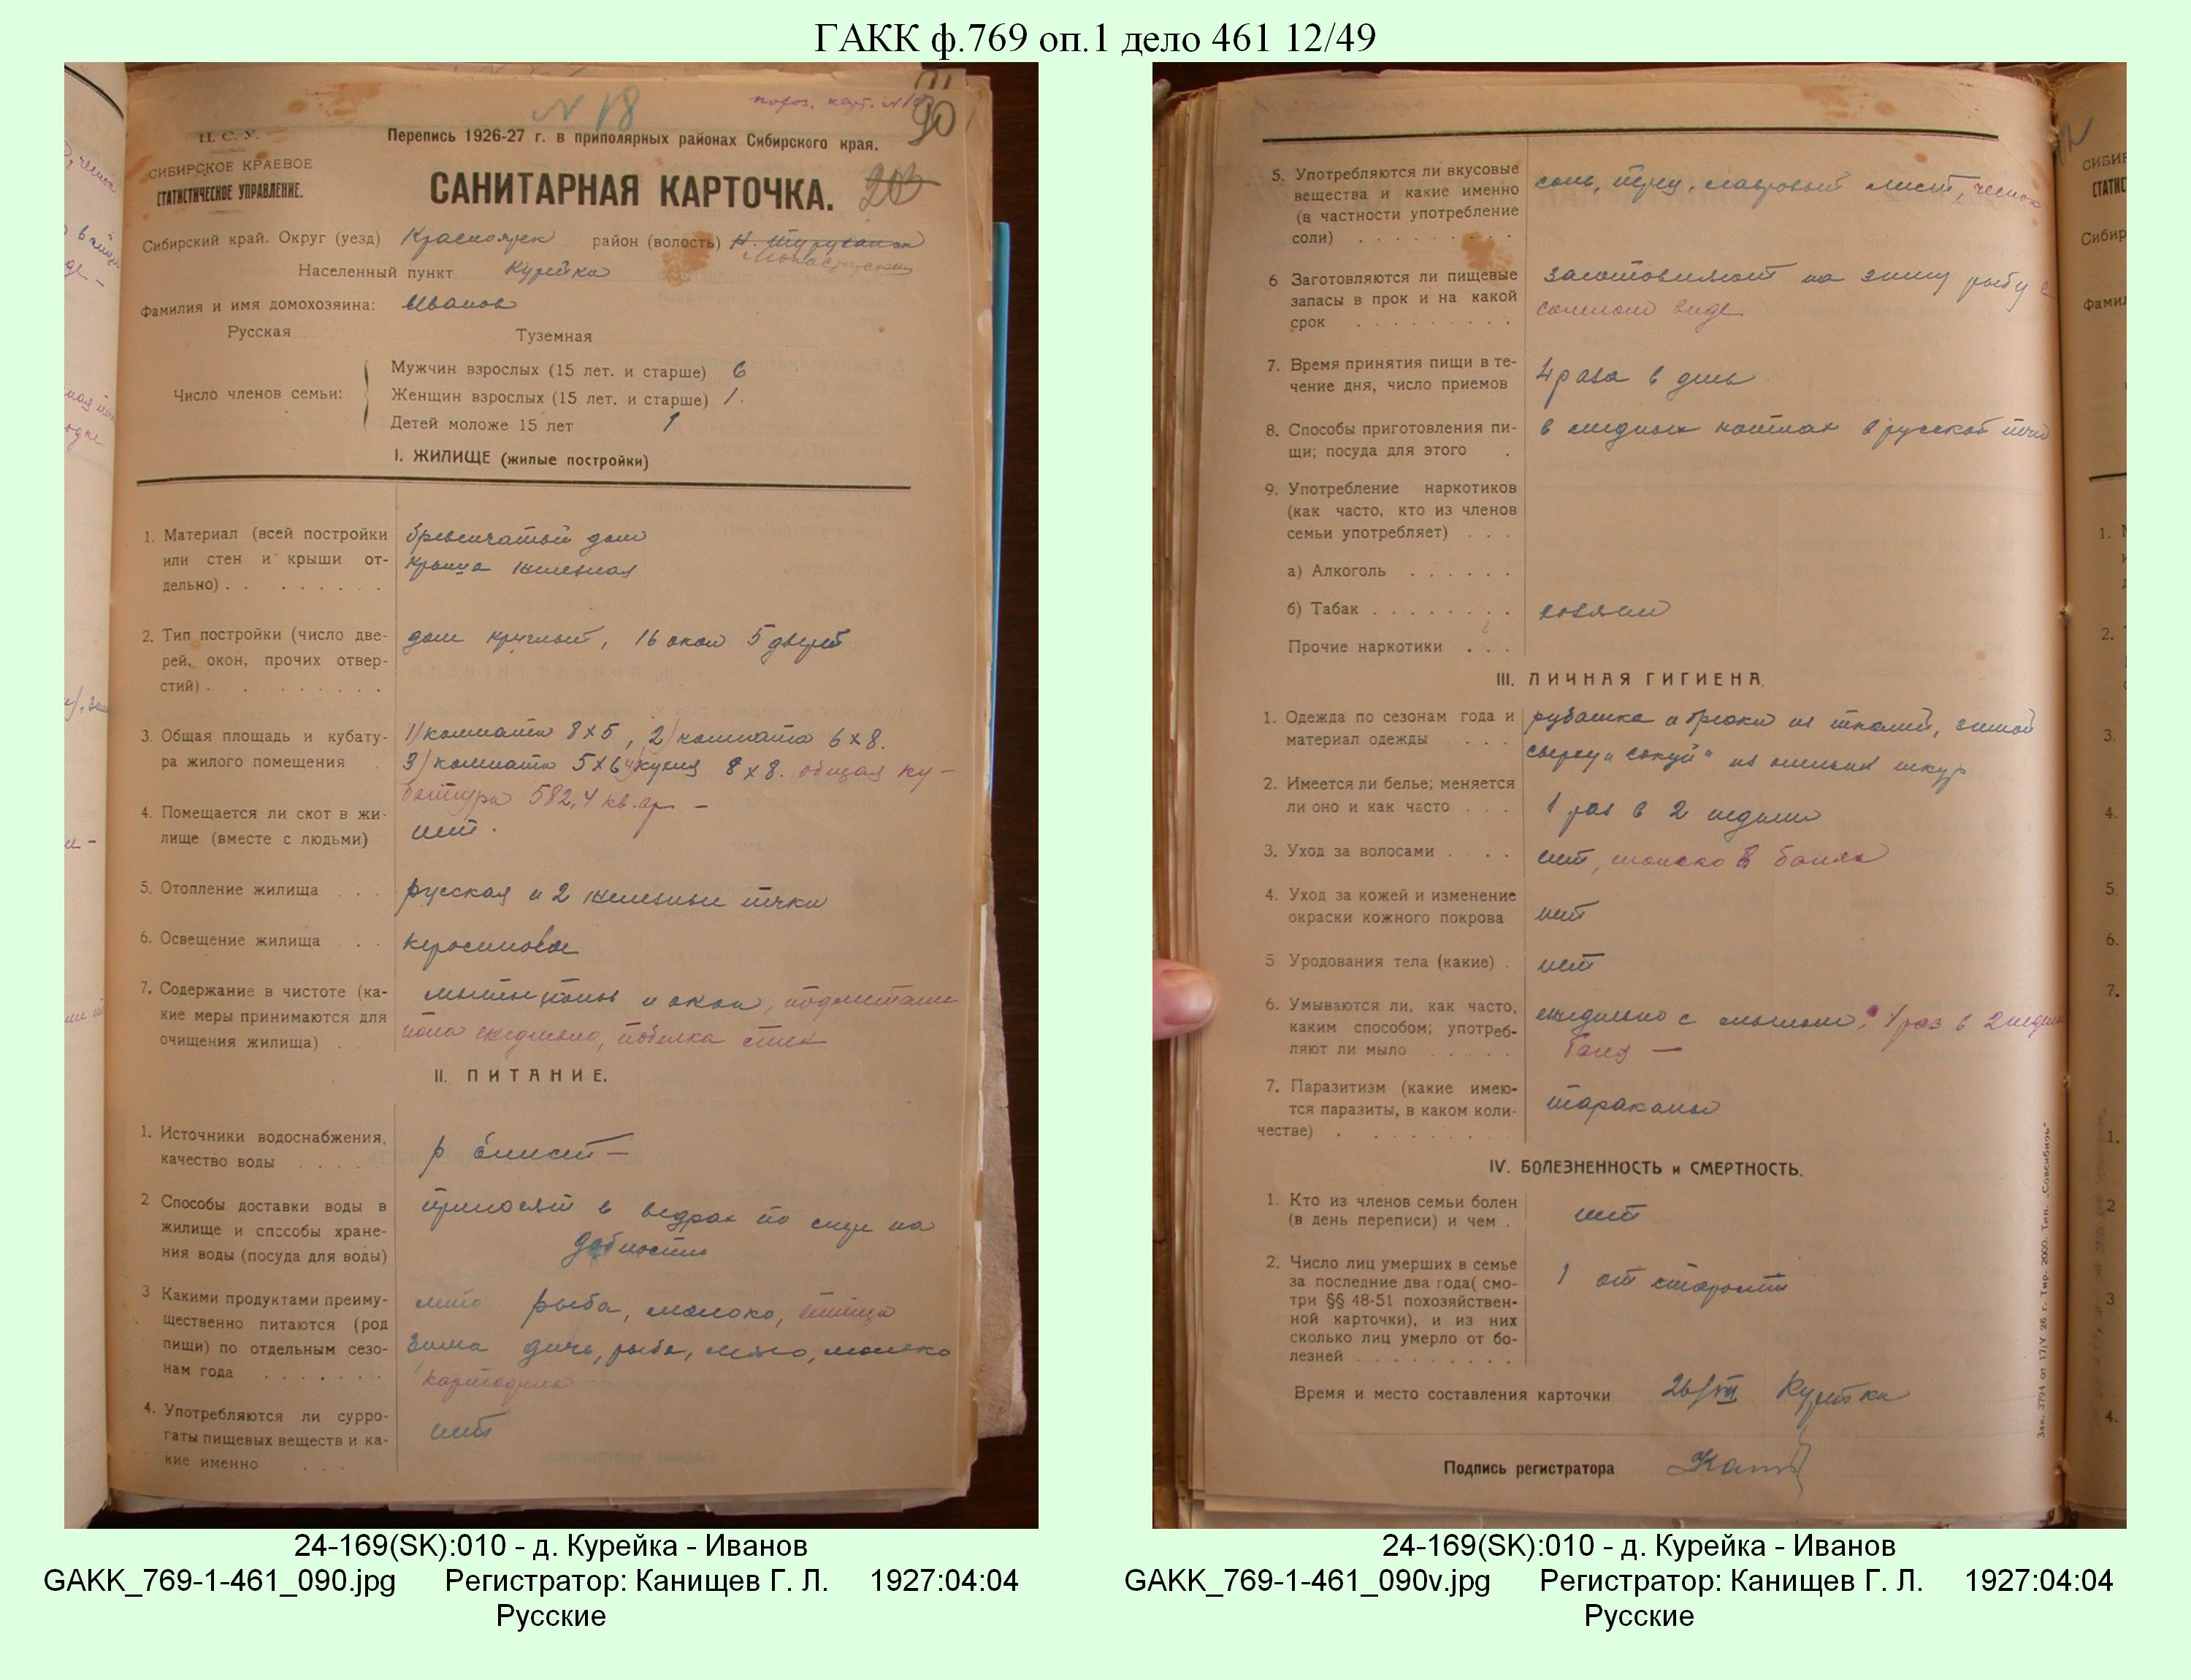 ГАКК ф.769 оп.1 дело 461 12/49
N 18
похоз. карт. N
90
Ц. С. У.
Перепись 1926-27 г. в приполярных районах Сибирского края.
СИБИРСКОЕ КРАЕВОЕ
СТАТИСТИЧЕСКОЕ УПРАВЛЕНИЕ.
САНИТАРНАЯ КАРТОЧКА.
Сибирский край. Округ (уезд) Красноярск район (волость) Н. Туруханск
Монастырский
Населенный пункт Курейка
Фамилия и имя домохозяина: Иванов
Русская Туземная
Число членов семьи:
Мужчин взрослых (15 лет. и старше) 6
Женщин взрослых (15 лет. и старше) 1.
Детей моложе 15 лет 1
I. ЖИЛИЩЕ (жилые постройки)
1. Материал (всей постройки бревенчатый дом
или стен и крыши от- крыша железная
дельно) . .
2. Тип постройки (число две- дом круглый, 16 окон 5 дверей
рей, окон, прочих отвер-
стий) .
3. Общая площадь и кубату- 1) комната 8х5, 2) комната 6х8.
ра жилого помещения 3) комната 5х6 4) кухня 8х8. общая ку-
батура 582,4 кв. ар –
4. Помещается ли скот в жи- нет.
лище (вместе с людьми)
5. Отопление жилища . . . русская и 2 железные печки
6. Освещение жилища . . . керосиновое
7. Содержание в чистоте (ка- мытье полов и окон, подметание
кие меры принимаются для пола ежедневно, побелка стен
очищения жилища) . .
II. ПИТАНИЕ.
1. Источники водоснабжения, р Енисей –
качество воды . . . .
2 Способы доставки воды в приносят в ведрах по мере на
жилище и способы хране- добности
ния воды (посуда для воды)
3 Какими продуктами преиму- лето рыба, молоко, птица
щественно питаются (род
пищи) по отдельным сезо- зима дичь, рыба, мясо, молоко
нам года . . . . . . . картофель
4. Употребляются ли сурро- нет
гаты пищевых веществ и ка-
кие именно . . .
5. Употребляются ли вкусовые соль, перец, лавровый лист, чеснок
вещества и какие именно
(в частности употребление
соли) . . . . . . . .
6 Заготовляются ли пищевые заготовляют на зиму рыбу в
запасы в прок и на какой соленом виде
срок . . . . . . . . .
7. Время принятия пищи в те- 4 раза в день
чение дня, число приемов
8. Способы приготовления пи- в медных котлах в русской печи
щи; посуда для этого .
9. Употребление наркотиков
(как часто, кто из членов
семьи употребляет) . . .
а) Алкоголь . . . . . .
б) Табак . . . . . . . . хозяин
Прочие наркотики . . .
III. ЛИЧНАЯ ГИГИЕНА.
1. Одежда по сезонам года и рубашка и брюки из тканей, зимой
материал одежды . . . сверху „сокуй" из оленьих шкур
2. Имеется ли белье; меняется
ли оно и как часто . . . 1 раз в 2 недели
3. Уход за волосами . . . нет, только в банях
4. Уход за кожей и изменение нет
окраски кожного покрова
5 Уродования тела (какие) . нет
6. Умываются ли, как часто, ежедневно с мылом, 1 раз в 2 недели
каким способом; употреб- баня –
ляют ли мыло . . . . .
7. Паразитизм (какие имею- тараканы
тся паразиты, в каком коли-
честве) . . . . . . . .
IV. БОЛЕЗНЕННОСТЬ и СМЕРТНОСТЬ.
1. Кто из членов семьи болен нет
(в день переписи) и чем .
2. Число лиц умерших в семье 1 от старости
за последние два года( смо-
три §§ 48-51 похозяйствен-
ной карточки), и из них
сколько лиц умерло от бо-
лезней . . . . . . . . .
Время и место составления карточки 26/VII Курейка
Подпись регистратора
Зак. 3794 от 17/V 26 г. Тир. 2000. Тип. „Совсибирь"
24-169(SK):010 - д. Курейка - Иванов
GAKK_769-1-461_090.jpg Регистратор: Канищев Г. Л. 1927:04:04
Русские
24-169(SK):010 - д. Курейка - Иванов
GAKK_769-1-461_090v.jpg Регистратор: Канищев Г. Л. 1927:04:04
Русские